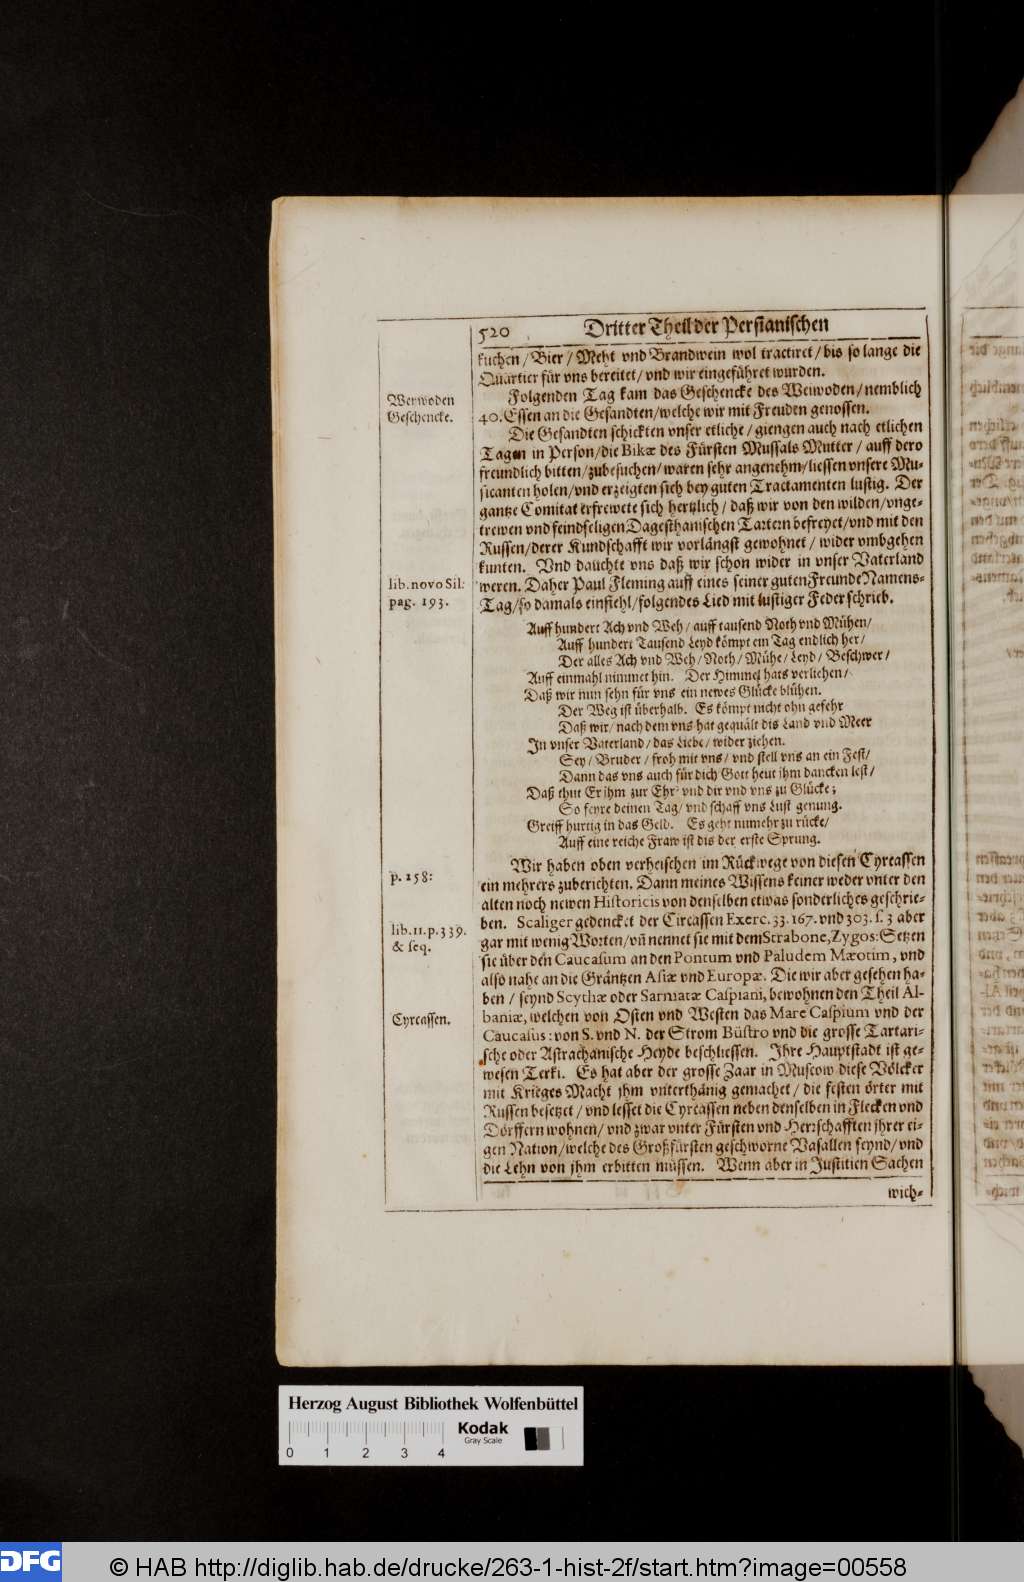 520 Dritter Theil der Persianischen
kuchen / Bier / Meht vnd Brandwein wol tractiret / bis so lange die
Quartier für vns bereitet / vnd wir eingeführet wurden.
Weiwoden
Geschencke.
Folgenden Tag kam das Geschencke des Weiwoden / nemblich
40. Essen an die Gesandten / welche wir mit Freuden genossen.
Die Gesandten schickten vnser etliche / giengen auch nach etlichen
Tagen in Person / die Bikæ des Fürsten Mussals Mutter / auff dero
freundlich bitten / zubesuchen / waren sehr angenehm / liessen vnsere Mu-
sicanten holen / vnd erzeigten sich bey guten Tractamenten lustig. Der
gantze Comitat erfrewete sich hertzlich / daß wir von den wilden / vnge-
trewen vnd feindseligen Dagesthanischen Tartern befreyet / vnd mit den
Russen / derer Kundschafft wir vorlängst gewohnet / wider vmbgehen
kunten. Vnd dauchte vns daß wir schon wider in vnser Vaterland
lib. novo Sil:
pag. 193.
weren. Daher Paul Fleming auff eines seiner guten Freunde Namens-
Tag / so damals einfiehl / folgendes Lied mit lustiger Feder schrieb.
Auff hundert Ach vnd Weh / auff tausend Noth vnd Mühen /
Auff hundert Tausend Leyd kömpt ein Tag endlich her /
Der alles Ach vnd Weh / Noth / Mühe / Leyd / Beschwer /
Auff einmahl nimmet hin. Der Himmel hats verliehen /
Daß wir nun sehn für vns ein newes Glücke blühen.
Der Weg ist überhalb. Es kömpt nicht ohn gefehr
Daß wir / nach dem vns hat gequält dis Land vnd Meer
In vnser Vaterland / das Liebe / wider ziehen.
Sey / Bruder / froh mit vns / vnd stell vns an ein Fest /
Dann das vns auch für dich Gott heut ihm dancken lest /
Daß thut Er ihm zur Ehr vnd dir vnd vns zu Glücke;
So feyre deinen Tag / vnd schaff vns Lust genung.
Greiff hurtig in das Geld. Es geht nunmehr zu rücke /
Auff eine reiche Fraw ist dis der erste Sprung.
p. 158:
Wir haben oben verheischen im Rückwege von diesen Cyreassen
ein mehrers zuberichten. Dann meines Wissens keiner weder vnter den
alten noch newen Historicis von denselben etwas sonderliches geschrie-
lib. 11. p. 339.
& seq.
ben. Scaliger gedencket der Circassen Exerc. 33. 167. vnd 303. s. 3 aber
gar mit wenig Worten / vñ nennet sie mit dem Strabone, Zygos: Setzen
sie über den Caucasum an den Pontum vnd Paludem Mæotim, vnd
also nahe an die Gräntzen Asiæ vnd Europæ. Die wir aber gesehen ha-
ben / seynd Scythæ oder Sarmatæ Caspiani, bewohnen den Theil Al-
Cyreassen.
baniæ, welchen von Osten vnd Westen das Mare Caspium vnd der
Caucasus: von S. vnd N. der Strom Büstro vnd die grosse Tartari-
sche oder Astrachanische Heyde beschliessen. Ihre Hauptstadt ist ge-
wesen Terki. Es hat aber der grosse Zaar in Muscow diese Völcker
mit Krieges Macht jhm vnterthänig gemachet / die festen örter mit
Russen besetzet / vnd lesset die Cyreassen neben denselben in Flecken vnd
Dörffern wohnen / vnd zwar vnter Fürsten vnd Herrschafften jhrer ei-
gen Nation / welche des Großfürsten geschworne Vasallen seynd / vnd
die Lehn von jhm erbitten müssen. Wenn aber in Justitien Sachen
wich-
Herzog August Bibliothek Wolfenbüttel
Kodak
Gray Scale
0 1 2 3 4
DFG © HAB http://diglib.hab.de/drucke/263-1-hist-2f/start.htm?image=00558